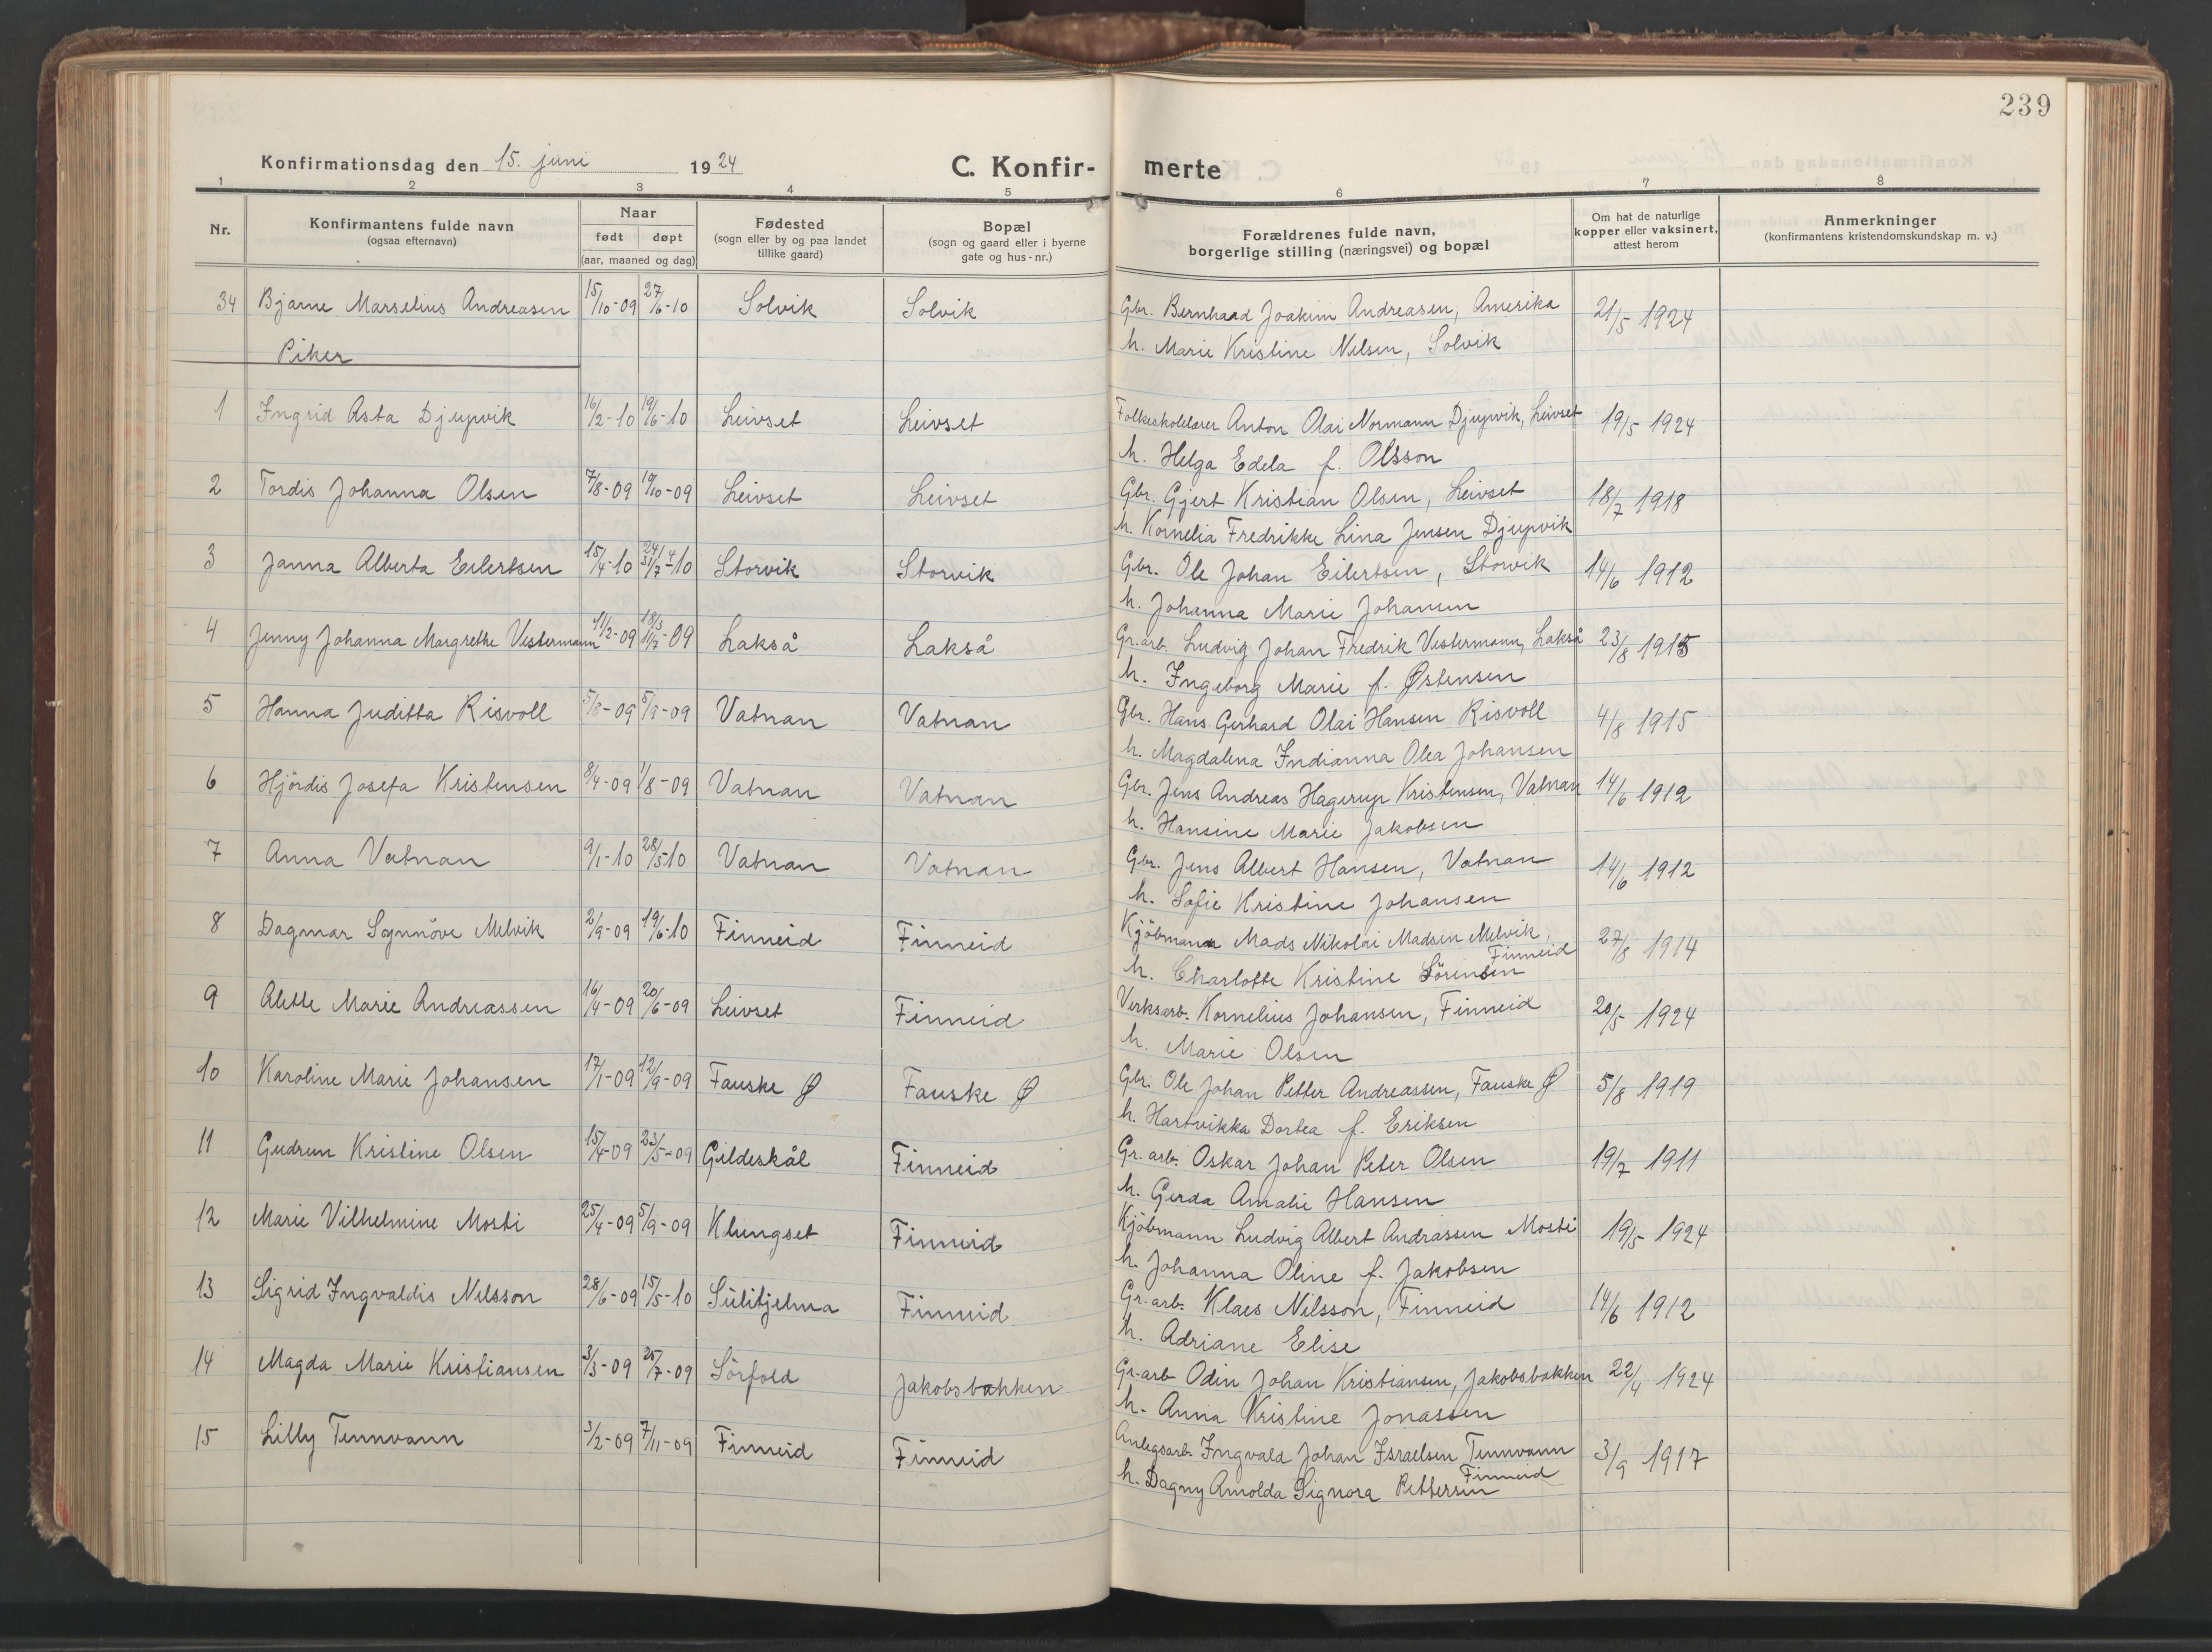 239
Konfirmationsdag den 15. juni 1924 C. Konfir- merte
1 2 3 4 5 6 7 8
Nr. Konfirmantens fulde navn (ogsaa efternavn) Naar født døpt (aar, maaned og dag) Fødested (sogn eller by og paa landet tillike gaard) Bopæl (sogn og gaard eller i byerne gate og hus-nr.) Forældrenes fulde navn, borgerlige stilling (næringsvei) og bopæl Om hat de naturlige kopper eller vaksinert, attest herom Anmerkninger (konfirmantens kristendomskundskap m. v.)
34 Bjarne Marselius Andreasen 15/10-09 27/6-10 Solvik Solvik Gbr. Bernhard Joakim Andreasen, Amerika 21/5 1924
h. Marie Kristine Nilsen, Solvik
Piker
1 Ingrid Asta Djupvik 16/2-10 19/6-10 Leivset Leivset Folkeskolelærer Anton Olai Normann Djupvik, Leivset 19/5 1924
h. Helga Edela f. Olsson
2 Tordis Johanna Olsen 7/8-09 19/10-09 Leivset Leivset Gbr. Gjert Kristian Olsen, Leivset 18/7 1918
h. Kornelia Fredrikke Lina Jensen Djupvik
3 Janna Alberta Eilertsen 15/4-10 24/4 31/7-10 Storvik Storvik Gbr. Ole Johan Eilertsen, Storvik 14/6 1912
h. Johanna Marie Johansen
4 Jenny Johanna Margrethe Vestermann 11/2-09 18/3 11/7-09 Lakså Lakså Gr.arb. Ludvig Johan Fredrik Vestermann, Lakså 23/8 1915
h. Ingeborg Marie f. Østensen
5 Hanna Juditta Risvoll 5/8-09 5/9-09 Vatnan Vatnan Gbr. Hans Gerhard Olai Hansen Risvoll 4/8 1915
h. Magdalena Indianna Olea Johansen
6 Hjördis Josefa Kristensen 8/4-09 1/8-09 Vatnan Vatnan Gbr. Jens Andreas Hagerup Kristensen, Vatnan 14/6 1912
h. Hansine Marie Jakobsen
7 Anna Vatnan 9/1-10 28/3-10 Vatnan Vatnan Gbr. Jens Albert Hansen, Vatnan 14/6 1912
h. Sofie Kristine Johansen
8 Dagmar Synnöve Melvik 2/9-09 19/6-10 Finneid Finneid Kjöbmann Mads Nikolai Madsen Melvik, 27/8 1914
Finneid
h. Charlotte Kristine Sörensen
9 Alette Marie Andreassen 16/4-09 20/6-09 Leivset Finneid Verksarb. Kornelius Johansen, Finneid 20/5 1924
h. Marie Olsen
10 Karoline Marie Johansen 17/1-09 12/9-09 Fauske Ø Fauske Ø Gbr. Ole Johan Petter Andreassen, Fauske Ø 5/8 1919
h. Hartvikka Dortea f. Eriksen
11 Gudrun Kristine Olsen 15/4-09 23/5-09 Gildeskål Finneid Gr. arb. Oskar Johan Peter Olsen 19/7 1911
h. Gerda Amalie Hansen
12 Marie Vilhelmine Mosti 25/4-09 5/9-09 Klungset Finneid Kjöbmann Ludvig Albert Andrassen Mosti 19/5 1924
h. Johanna Oline f. Jakobsen
13 Sigrid Ingvaldis Nilsson 28/6-09 15/5-10 Sulitjelma Finneid Gr.arb. Klaes Nilsson, Finneid 14/6 1912
h. Adriane Elise
14 Magda Marie Kristiansen 3/3-09 25/7-09 Sörfold Jakobsbakken Gr.arb Odin Johan Kristiansen, Jakobsbakken 22/4 1924
h. Anna Kristine Jonassen
15 Lilly Tennvann 3/2-09 7/11-09 Finneid Finneid Anlegsarb. Ingvald Johan Israelsen Tennvann 3/9 1917
Finneid
h. Dagny Arnolda Signora Pettersen